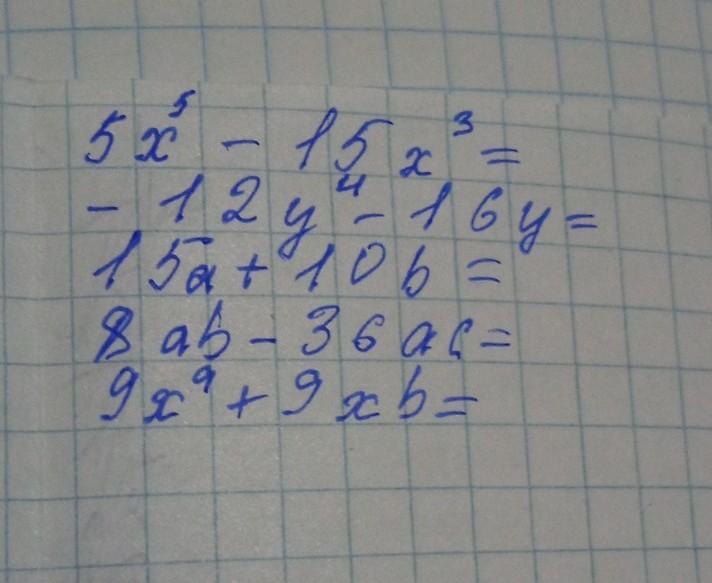 5x⁵ - 15x³ =
- 12y⁴ - 16y =
15a + 10b =
8ab - 36ac =
9x⁹ + 9xb =